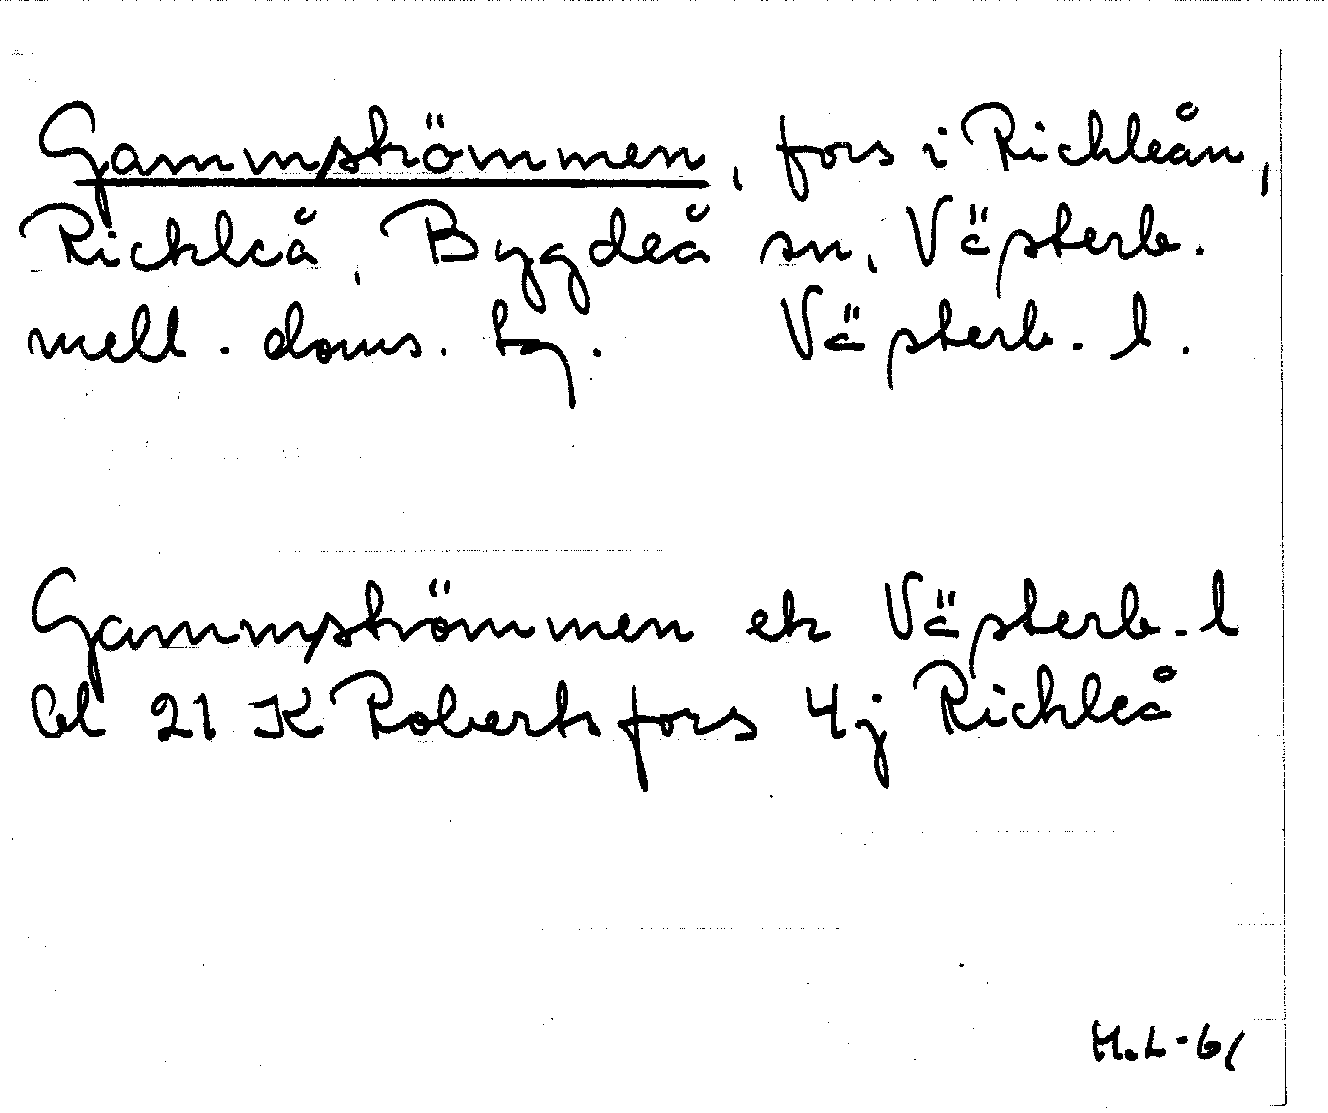 Gammströmmen, fors i Rickleån,
Rickleå, Bygdeå sn, Västerb.
mell. doms. tg. Västerb. l.
Gammströmmen ek Västerb. l
bl 21 K Robertsfors 4j Rickleå
H.L-61